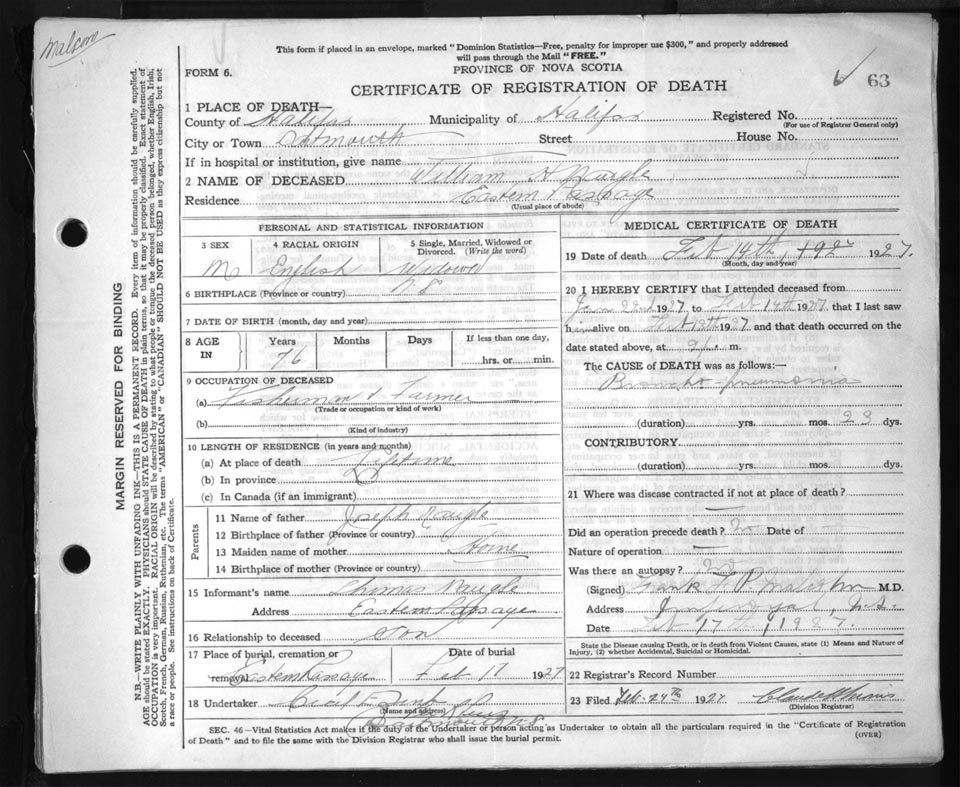 Malcom
This form if placed in an envelope, marked "Dominion Statistics—Free, penalty for improper use $300," and properly addressed
will pass through the Mail "FREE."
FORM 6.
PROVINCE OF NOVA SCOTIA
63
CERTIFICATE OF REGISTRATION OF DEATH
MARGIN RESERVED FOR BINDING
N.B.—WRITE PLAINLY WITH UNFADING INK—THIS IS A PERMANENT RECORD. Every item of information should be carefully supplied.
AGE should be stated EXACTLY. PHYSICIANS should STATE CAUSE OF DEATH in plain terms, so that it may be properly classified. Exact statement of
OCCUPATION is very important. RACIAL ORIGIN will be described by stating to what people or tongue the deceased person belonged, whether English, Irish,
Scotch, French, German, Russian, Ruthenian, etc. The terms "AMERICAN" or "CANADIAN" SHOULD NOT BE USED as they express citizenship but not
a race or people. See instructions on back of Certificate.
1 PLACE OF DEATH—
County of Halifax Municipality of Halifax Registered No.
(For use of Registrar General only)
City or Town Dartmouth Street House No.
If in hospital or institution, give name
2 NAME OF DECEASED William H Naugle
Residence Eastern Passage
(Usual place of abode)
PERSONAL AND STATISTICAL INFORMATION
3 SEX 4 RACIAL ORIGIN 5 Single, Married, Widowed or Divorced. (Write the word)
M English Widowed
6 BIRTHPLACE (Province or country) N S
7 DATE OF BIRTH (month, day and year)
8 AGE IN Years Months Days If less than one day,
76 hrs. or min.
9 OCCUPATION OF DECEASED
(a) Fisherman & Farmer
(Trade or occupation or kind of work)
(b)
(Kind of industry)
10 LENGTH OF RESIDENCE (in years and months)
(a) At place of death Lifetime
(b) In province
(c) In Canada (if an immigrant)
Parents
11 Name of father Joseph Naugle
12 Birthplace of father (Province or country)
13 Maiden name of mother Horne
14 Birthplace of mother (Province or country)
15 Informant's name Thomas Naugle
Address Eastern Passage
16 Relationship to deceased Son
17 Place of burial, cremation or removal Date of burial
Eastern Passage Feb 17 1927
18 Undertaker
(Name and address)
Dartmouth N S
MEDICAL CERTIFICATE OF DEATH
19 Date of death Feb 14th, 192 1927.
(Month, day and year)
20 I HEREBY CERTIFY that I attended deceased from
Jan 22nd 1927 to Feb 14th 1927 that I last saw
him alive on Feb 13th 1927 and that death occurred on the
date stated above, at 9 m.
The CAUSE of DEATH was as follows:—
Broncho pneumonia
(duration) yrs. mos. 23 dys.
CONTRIBUTORY
(duration) yrs. mos. dys.
21 Where was disease contracted if not at place of death?
Did an operation precede death? No Date of
Nature of operation
Was there an autopsy? No
(Signed) Frank P Malcolm M.D.
Address
Date Feb 17th, 1927.
State the Disease causing Death, or in death from Violent Causes, state (1) Means and Nature of
Injury, (2) whether Accidental, Suicidal or Homicidal.
22 Registrar's Record Number
23 Filed Feb. 24th 1927
(Division Registrar)
SEC. 46—Vital Statistics Act makes it the duty of the Undertaker or person acting as Undertaker to obtain all the particulars required in the "Certificate of Registration
of Death" and to file the same with the Division Registrar who shall issue the burial permit.
(OVER)